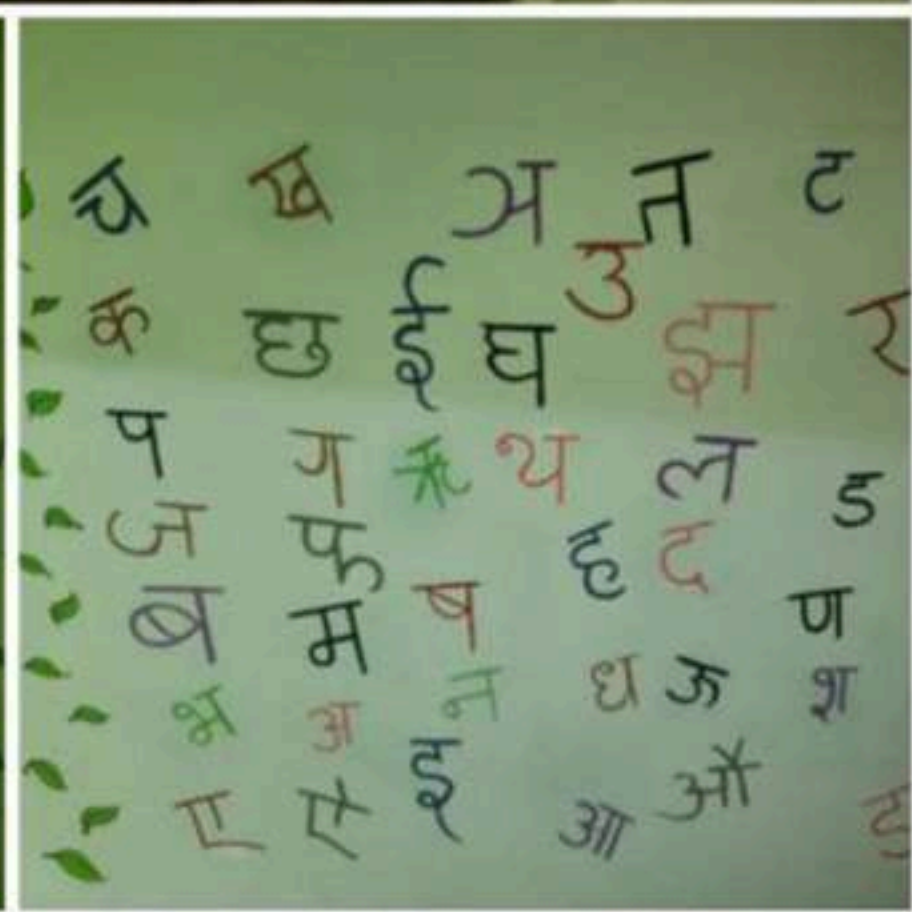 च ख ञ त ट
उ
क छ ई घ झ र
प ग ऋ थ ल ड
ज फ ह द
ब म ष ण
भ अ न ध ऊ श
ए ऐ इ आ औ